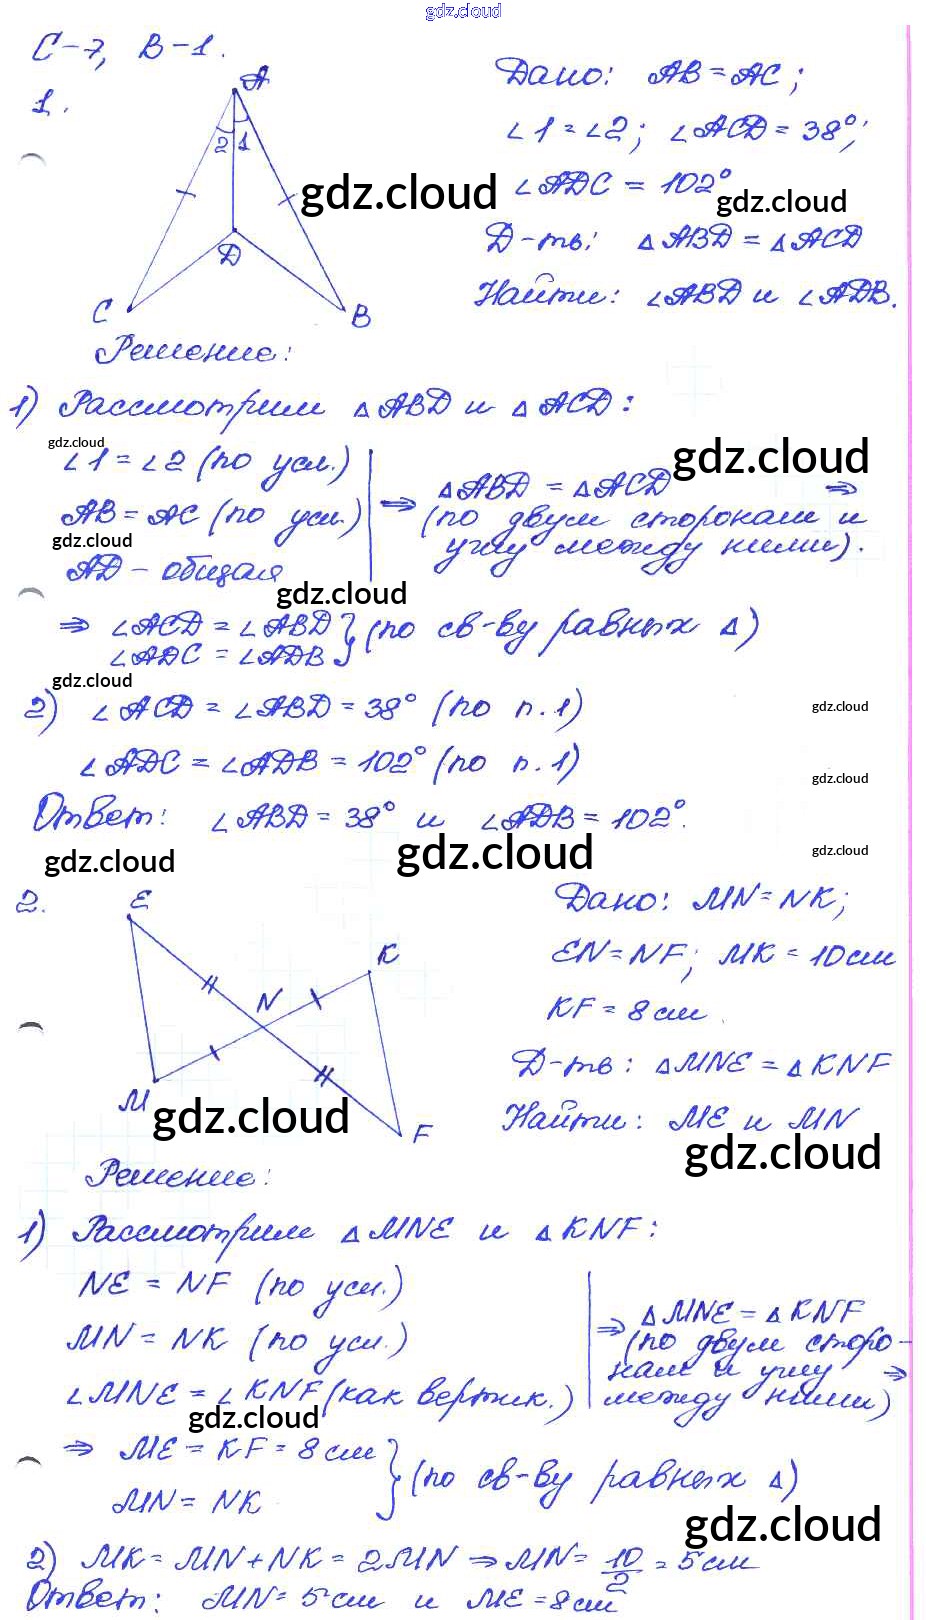 gdz.cloud
С-7, В-1.
1.
A
2 1
D
C
B
Дано: AB = AC;
∠1 = ∠2; ∠ACD = 38°;
∠ADC = 102°
gdz.cloud
gdz.cloud
Д-ть: △ABD = △ACD
Найти: ∠ABD и ∠ADB.
Решение:
1) Рассмотрим △ABD и △ACD:
gdz.cloud
gdz.cloud
∠1 = ∠2 (по усл.)
AB = AC (по усл.)
gdz.cloud
AD - общая
⇒ △ABD = △ACD ⇒
(по двум сторонам и
углу между ними).
gdz.cloud
⇒ ∠ACD = ∠ABD
∠ADC = ∠ADB } (по св-ву равных △)
gdz.cloud
2) ∠ACD = ∠ABD = 38° (по п.1)
gdz.cloud
∠ADC = ∠ADB = 102° (по п.1)
gdz.cloud
Ответ: ∠ABD = 38° и ∠ADB = 102°.
gdz.cloud
gdz.cloud
gdz.cloud
2.
E
K
N
M
F
Дано: MN = NK;
EN = NF; MK = 10 см
KF = 8 см
Д-ть: △MNE = △KNF
Найти: ME и MN
gdz.cloud
gdz.cloud
Решение:
1) Рассмотрим △MNE и △KNF:
NE = NF (по усл.)
MN = NK (по усл.)
∠MNE = ∠KNF (как вертик.)
⇒ △MNE = △KNF
(по двум сторо-
нам и углу ⇒
между ними)
gdz.cloud
⇒ ME = KF = 8 см
MN = NK } (по св-ву равных △)
gdz.cloud
2) MK = MN + NK = 2MN ⇒ MN = 10/2 = 5 см
Ответ: MN = 5 см и ME = 8 см